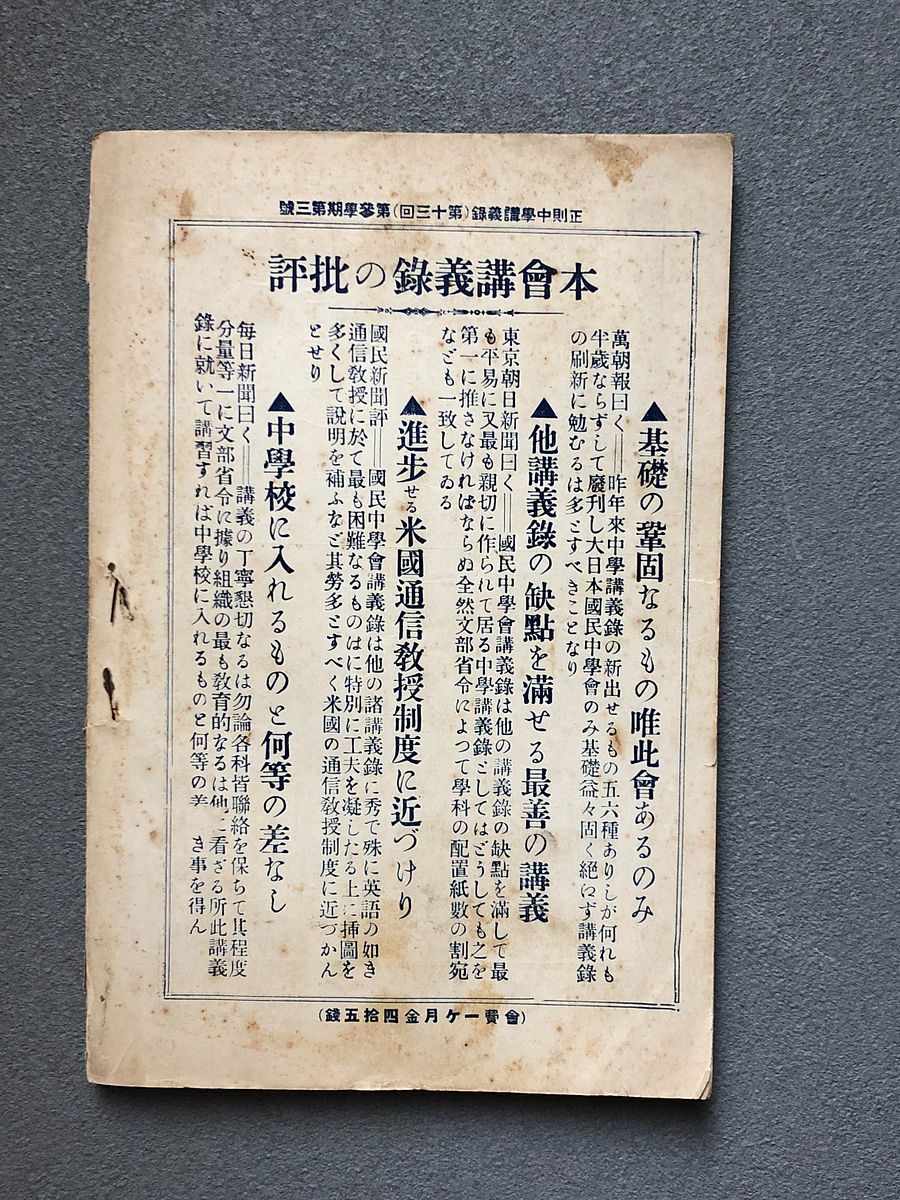 正則中學講義錄(第十三回)第參學期第三號
本會講義錄の批評
▲基礎の鞏固なるもの唯此會あるのみ
萬朝報曰く——昨年來中學講義錄の新出せるもの五六種ありしが何れも
半歲ならずして廢刊し大日本國民中學會のみ基礎益々固く絕えず講義錄
の刷新に勉むるは多とすべきことなり
▲他講義錄の缺點を滿せる最善の講義
東京朝日新聞曰く——國民中學會講義錄は他の講義錄の缺點を滿して最
も平易に又最も親切に作られて居る中學講義錄としてはどうしても之を
第一に推さなければならぬ全然文部省令によつて學科の配置紙數の割宛
なども一致してゐる
▲進步せる米國通信敎授制度に近づけり
國民新聞評——國民中學會講義錄は他の諸講義錄に秀で殊に英語の如き
通信敎授に於て最も困難なるものはに特別に工夫を凝したる上に揷圖を
多くして說明を補ふなど其勞多とすべく米國の通信敎授制度に近づかん
とせり
▲中學校に入れるものと何等の差なし
每日新聞曰く——講義の丁寧懇切なるは勿論各科皆聯絡を保ちて其程度
分量等一に文部省令に據り組織の最も敎育的なるは他に看ざる所此講義
錄に就いて講習すれば中學校に入れるものと何等の差 き事を得ん
(會費一ケ月金四拾五錢)